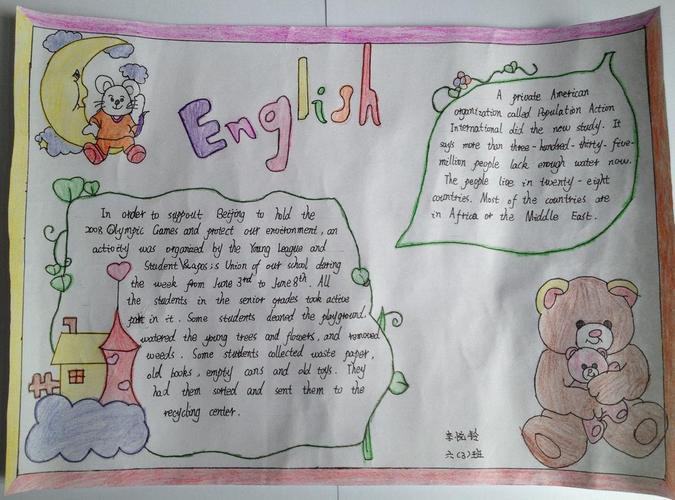 English
In order to support Beijing to hold the
2008 Olympic Games and protect our environment, an
activity was organized by the Young League and
Student Union of our school during
the week from June 3rd to June 8th. All
the students in the senior grades took active
part in it. Some students cleaned the playground,
watered the young trees and flowers, and removed
weeds. Some students collected waste paper,
old books, empty cans and old toys. They
had them sorted and sent them to the
recycling center.
A private American
organization called Population Action
International did the new study. It
says more than three-hundred-thirty-five-
million people lack enough water now.
The people live in twenty-eight
countries. Most of the countries are
in Africa or the Middle East.
李悦
六(3)班